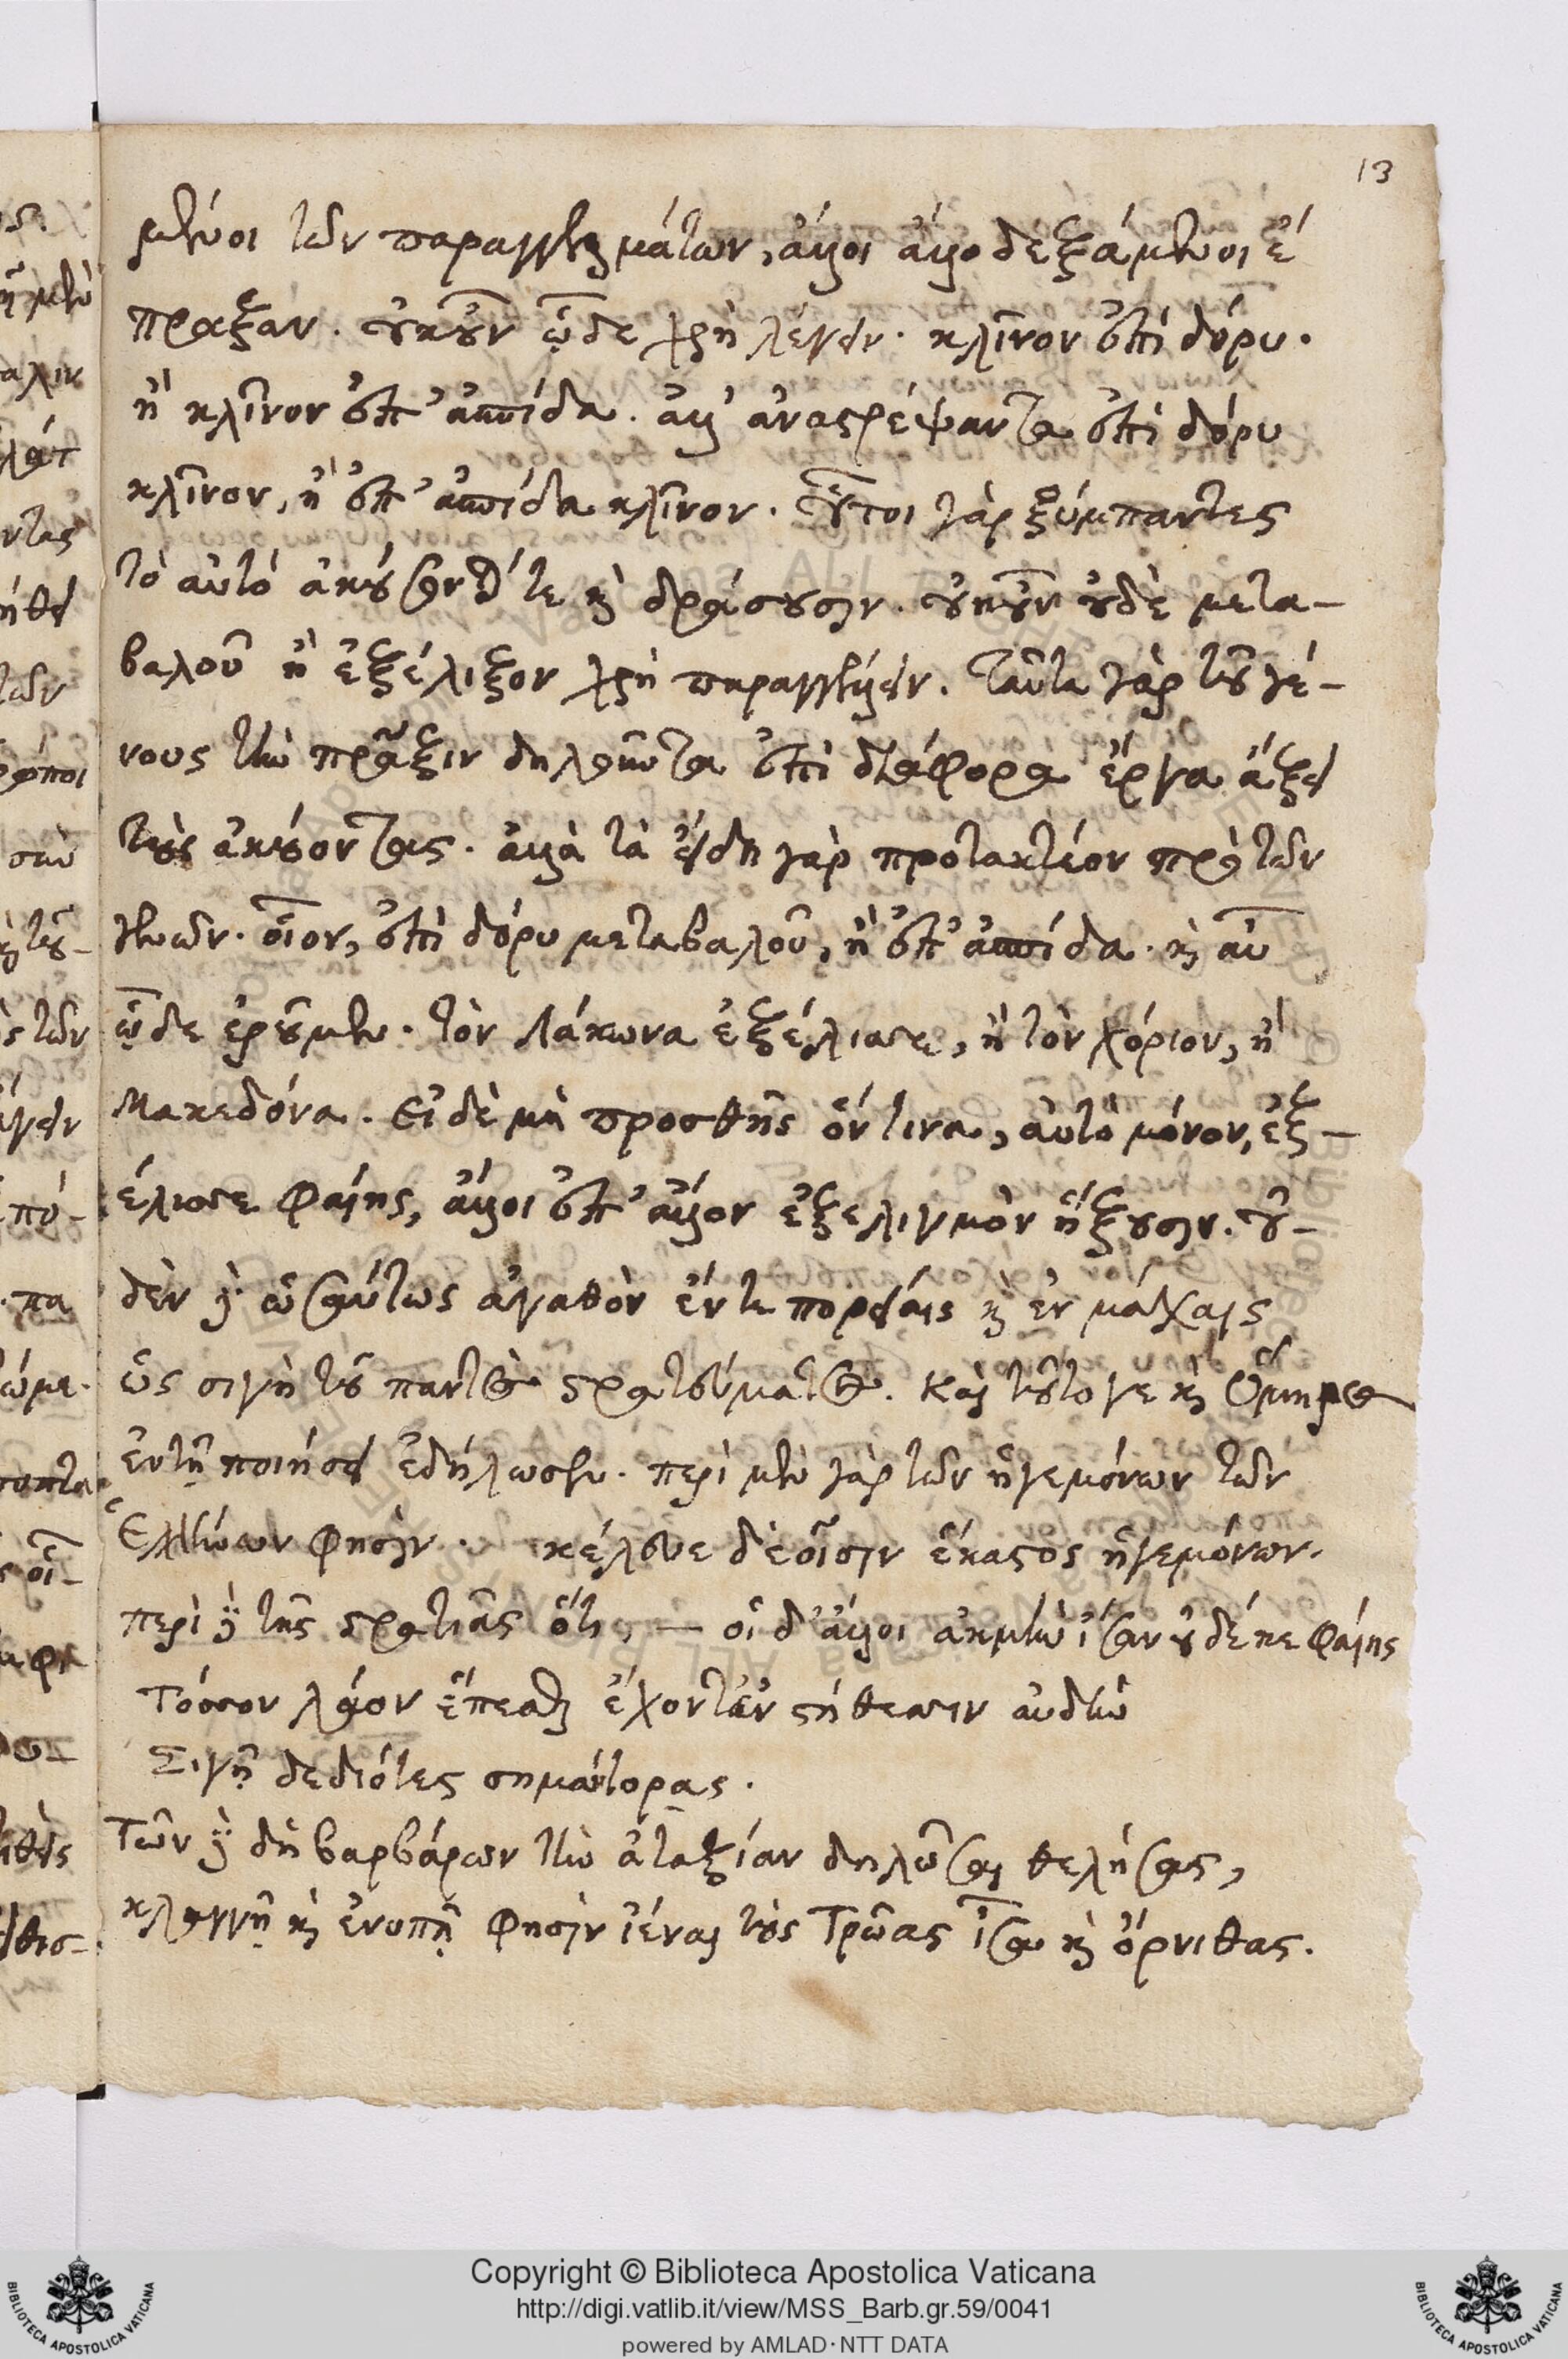 13
μενοι τῶν παραγγελμάτων, ἄλλοι ἄλλο δεξάμενοι ἔ
πραξαν. οὐκοῦν ᾧδε χρὴ λέγειν. κλῖνον ἐπὶ δόρυ.
ἢ κλῖνον ἐπ' ἀσπίδα. ἀλλ' ἀναστρέψαντα ἐπὶ δόρυ
κλῖνον, ἢ ἐπ' ἀσπίδα κλῖνον. οὗτοι γὰρ ξύμπαντες
τὸ αὐτὸ ἀκούσονταί τε καὶ δράσουσιν. οὐκοῦν οὐδὲ μετα-
βαλοῦ ἢ ἐξέλιξον χρὴ παραγγέλλειν. ταῦτα γὰρ τοῦ γέ-
νους τὴν πρᾶξιν δηλοῦντα ἐπὶ διάφορα ἔργα ἄξει
τοὺς ἀκούοντας. ἀλλὰ τὰ εἴδη γὰρ προτακτέον πρὸ τῶν
γενῶν. οἷον, ἐπὶ δόρυ μεταβαλοῦ, ἢ ἐπ' ἀσπίδα. καὶ αὖ
ᾧδε ἐροῦμεν. τὸν Λάκωνα ἐξέλισσε, ἢ τὸν χόριον, ἢ
Μακεδόνα. Εἰ δὲ μὴ προσθῇς ὅντινα, αὐτὸ μόνον, ἐξ-
έλισσε φαίης, ἄλλοι ἐπ' ἄλλον ἐξελιγμὸν ἥξουσιν. οὐ-
δὲν δὲ ὡσαύτως ἀγαθὸν ἔν τε πορείαις καὶ ἐν μάχαις
ὡς σιγὴ τοῦ παντὸς στρατεύματος. Καὶ τοῦτο γε καὶ Ὅμηρος
ἐν τῇ ποιήσει ἐδήλωσεν. περὶ μὲν γὰρ τῶν ἡγεμόνων τῶν
Ἑλλήνων φησὶν. κέλευε δὲ οἷσιν ἕκαστος ἡγεμόνων.
περὶ δὲ τῆς στρατιᾶς ὅτι, — οἱ δ' ἄλλοι ἀκμὴν ἴσαν οὐδέ κε φαίης
Τόσσον λαὸν ἕπεσθαι ἔχοντ' ἐν στήθεσσιν αὐδὴν
Σιγῇ δεδιότες σημάντορας.
Τῶν δὲ δὴ βαρβάρων τὴν ἀταξίαν δηλῶσαι θελήσας,
κλαγγῇ καὶ ἐνοπῇ φησὶν ἰέναι τοὺς Τρῶας ἶσα καὶ ὄρνιθας.
Copyright © Biblioteca Apostolica Vaticana
http://digi.vatlib.it/view/MSS_Barb.gr.59/0041
powered by AMLAD·NTT DATA
BIBLIOTECA APOSTOLICA VATICANA
BIBLIOTECA APOSTOLICA VATICANA